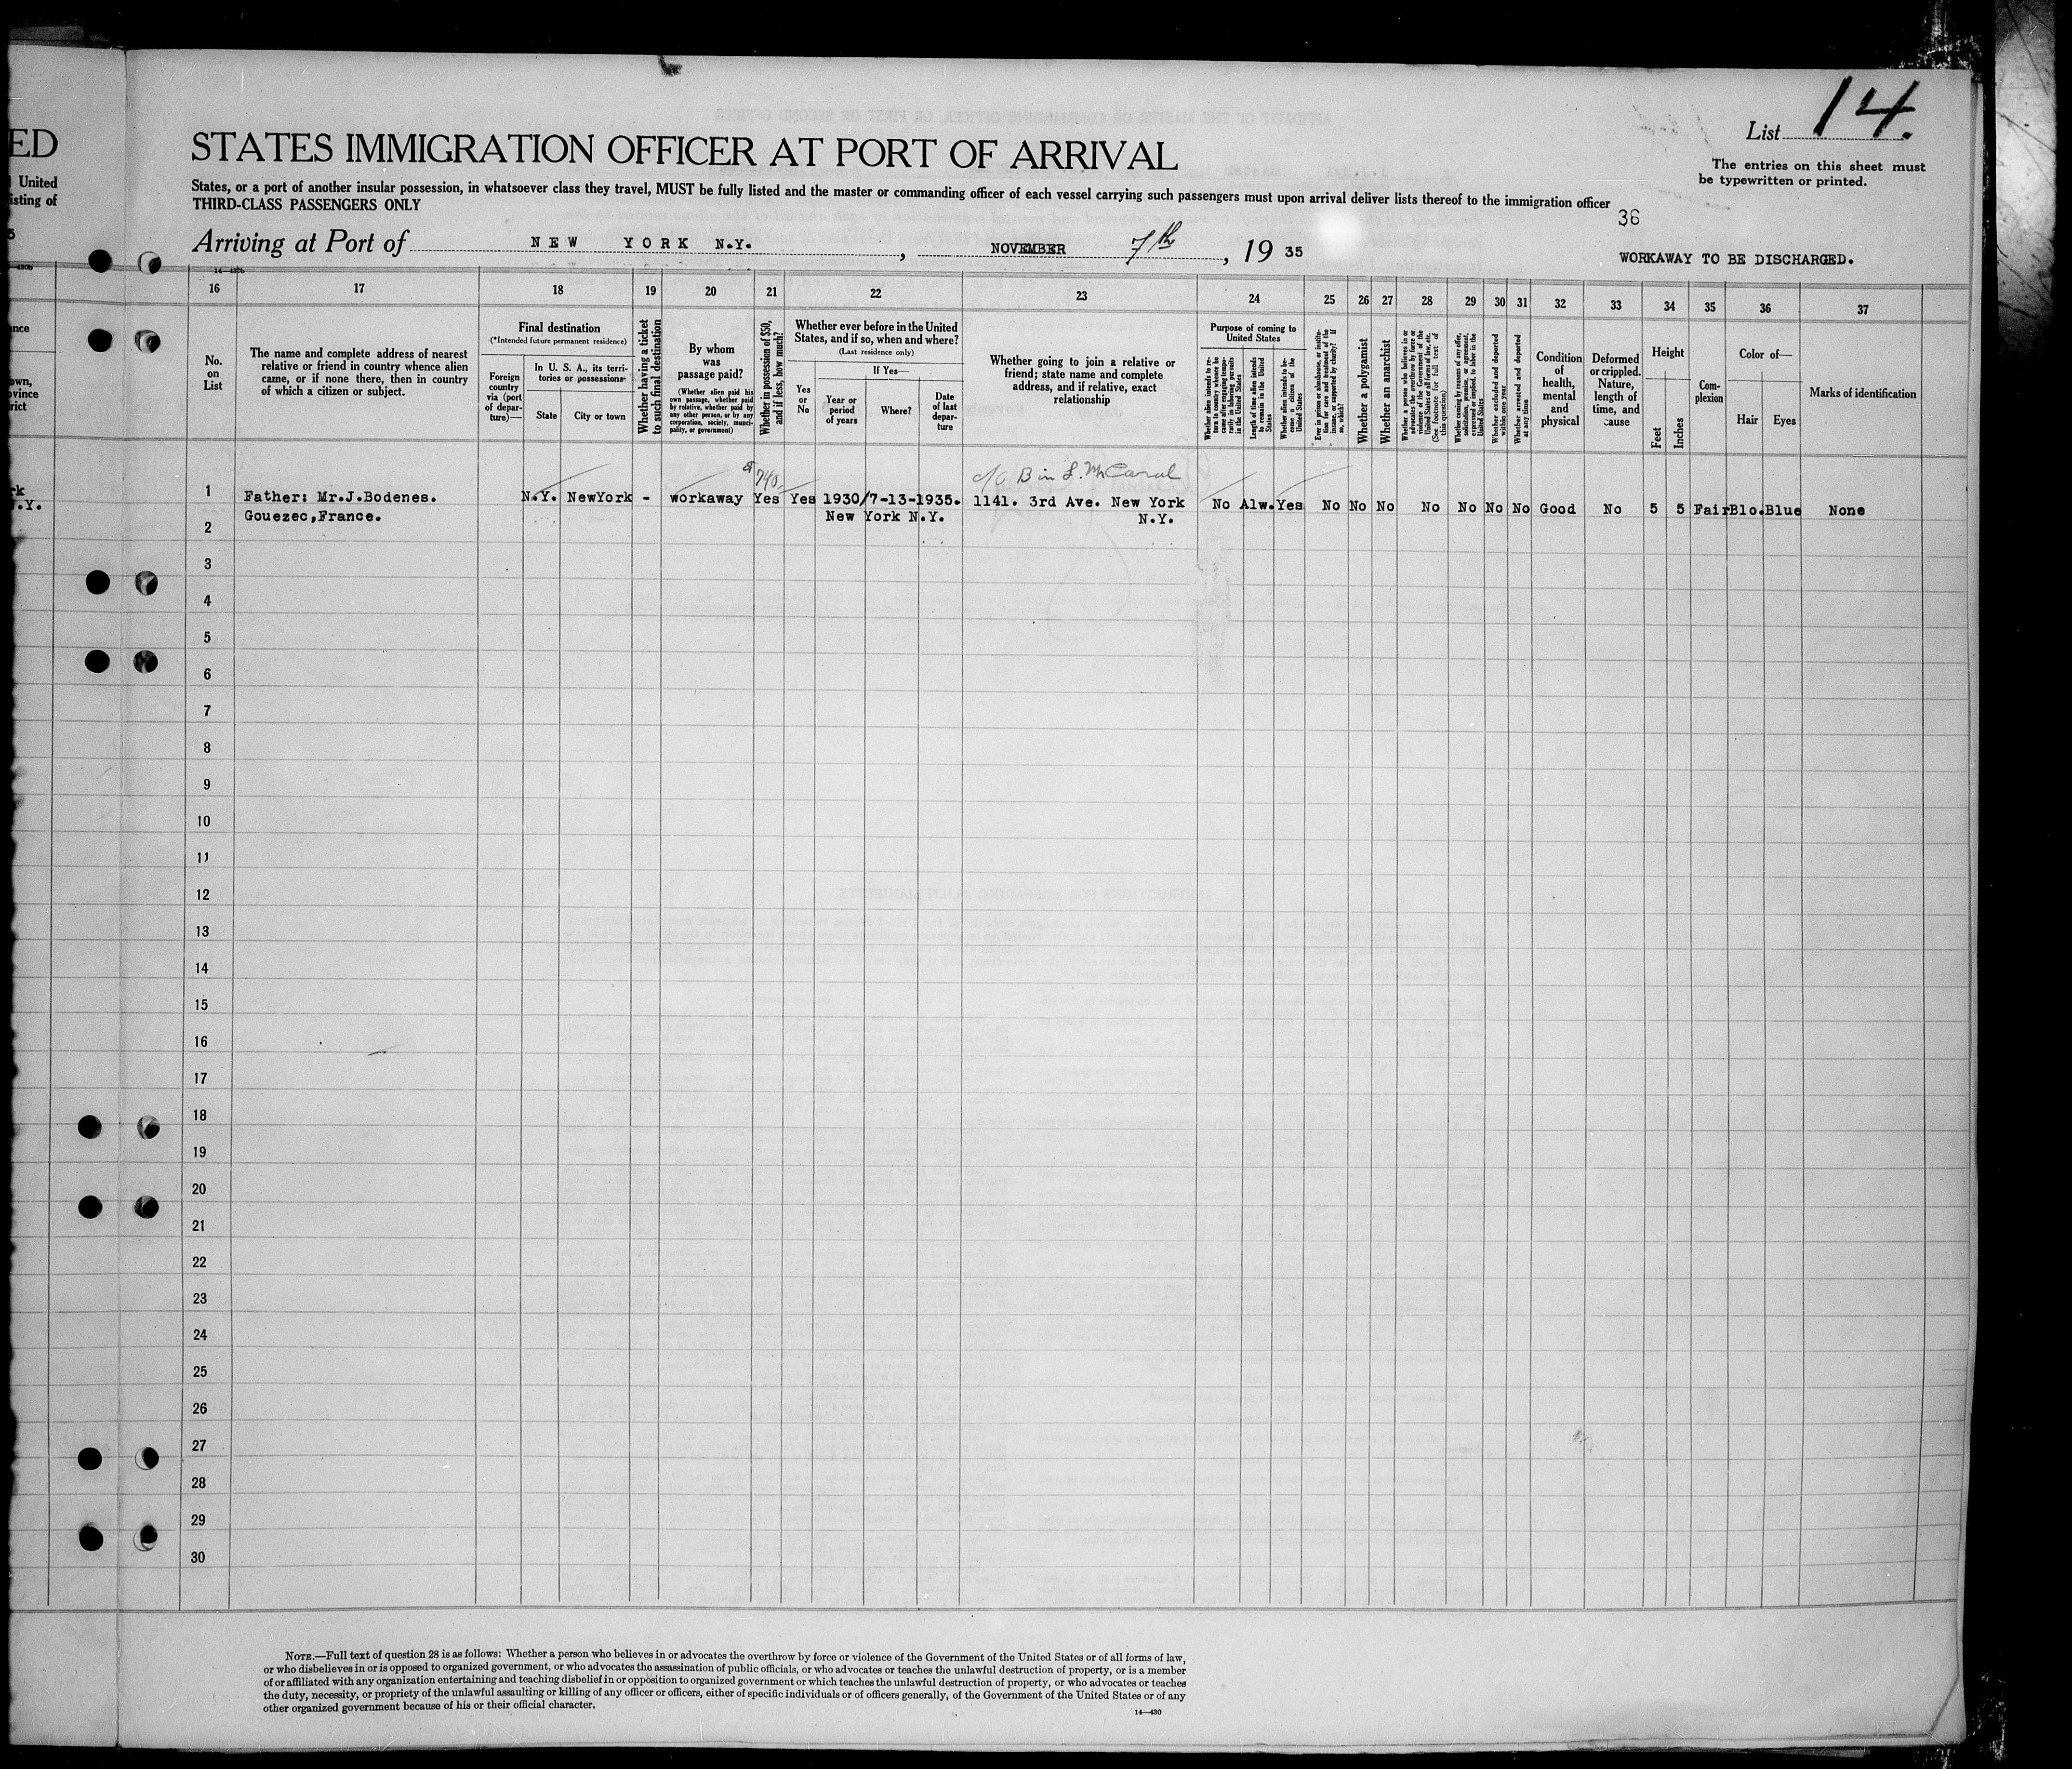 ED
United
isting of
5
STATES IMMIGRATION OFFICER AT PORT OF ARRIVAL
List 14.
The entries on this sheet must
be typewritten or printed.
States, or a port of another insular possession, in whatsoever class they travel, MUST be fully listed and the master or commanding officer of each vessel carrying such passengers must upon arrival deliver lists thereof to the immigration officer
THIRD-CLASS PASSENGERS ONLY
36
Arriving at Port of NEW YORK N.Y., NOVEMBER 7th, 19 35
WORKAWAY TO BE DISCHARGED.
14—430b
16 17 18 19 20 21 22 23 24 25 26 27 28 29 30 31 32 33 34 35 36 37
No.
on
List
The name and complete address of nearest
relative or friend in country whence alien
came, or if none there, then in country
of which a citizen or subject.
Final destination
(*Intended future permanent residence)
Foreign
country
via (port
of depar-
ture)—
In U. S. A., its terri-
tories or possessions
State
City or town
Whether having a ticket
to such final destination
By whom
was
passage paid?
(Whether alien paid his
own passage, whether paid
by relative, whether paid by
any other person, or by any
corporation, society, munici-
pality, or government)
Whether in possession of $50,
and if less, how much?
Whether ever before in the United
States, and if so, when and where?
(Last residence only)
Yes
or
No
If Yes—
Year or
period
of years
Where?
Date
of last
depar-
ture
Whether going to join a relative or
friend; state name and complete
address, and if relative, exact
relationship
Purpose of coming to
United States
Whether alien intends to re-
turn to country whence he
came after engaging tempo-
rarily in laboring pursuits
in the United States
Length of time alien intends
to remain in the United
States
Whether alien intends to be-
come a citizen of the
United States
Ever in prison or almshouse, or institu-
tion for care and treatment of the
insane, or supported by charity? If
so, which?
Whether a polygamist
Whether an anarchist
Whether a person who believes in or
advocates the overthrow by force or
violence of the Government of the
United States or all forms of law, etc.
(See footnote for full text of
this question)
Whether coming by reasons of any offer,
solicitation, promise, or agreement,
expressed or implied, to labor in the
United States
Whether excluded and deported
within one year
Whether arrested and deported
at any time
Condition
of
health,
mental
and
physical
Deformed
or crippled.
Nature,
length of
time, and
cause
Height
Feet
Inches
Com-
plexion
Color of—
Hair
Eyes
Marks of identification
$740
c/o
1 Father: Mr.J.Bodenes. N.Y. NewYork - workaway Yes Yes 1930/7-13-1935. 1141. 3rd Ave. New York No Alw. Yes No No No No No No No Good No 5 5 Fair Blo. Blue None
Gouezec,France. New York N.Y. N.Y.
2
3
4
5
6
7
8
9
10
11
12
13
14
15
16
17
18
19
20
21
22
23
24
25
26
27
28
29
30
NOTE.—Full text of question 28 is as follows: Whether a person who believes in or advocates the overthrow by force or violence of the Government of the United States or of all forms of law,
or who disbelieves in or is opposed to organized government, or who advocates the assassination of public officials, or who advocates or teaches the unlawful destruction of property, or is a member
of or affiliated with any organization entertaining and teaching disbelief in or opposition to organized government or which teaches the unlawful destruction of property, or who advocates or teaches
the duty, necessity, or propriety of the unlawful assaulting or killing of any officer or officers, either of specific individuals or of officers generally, of the Government of the United States or of any
other organized government because of his or their official character.
14—430